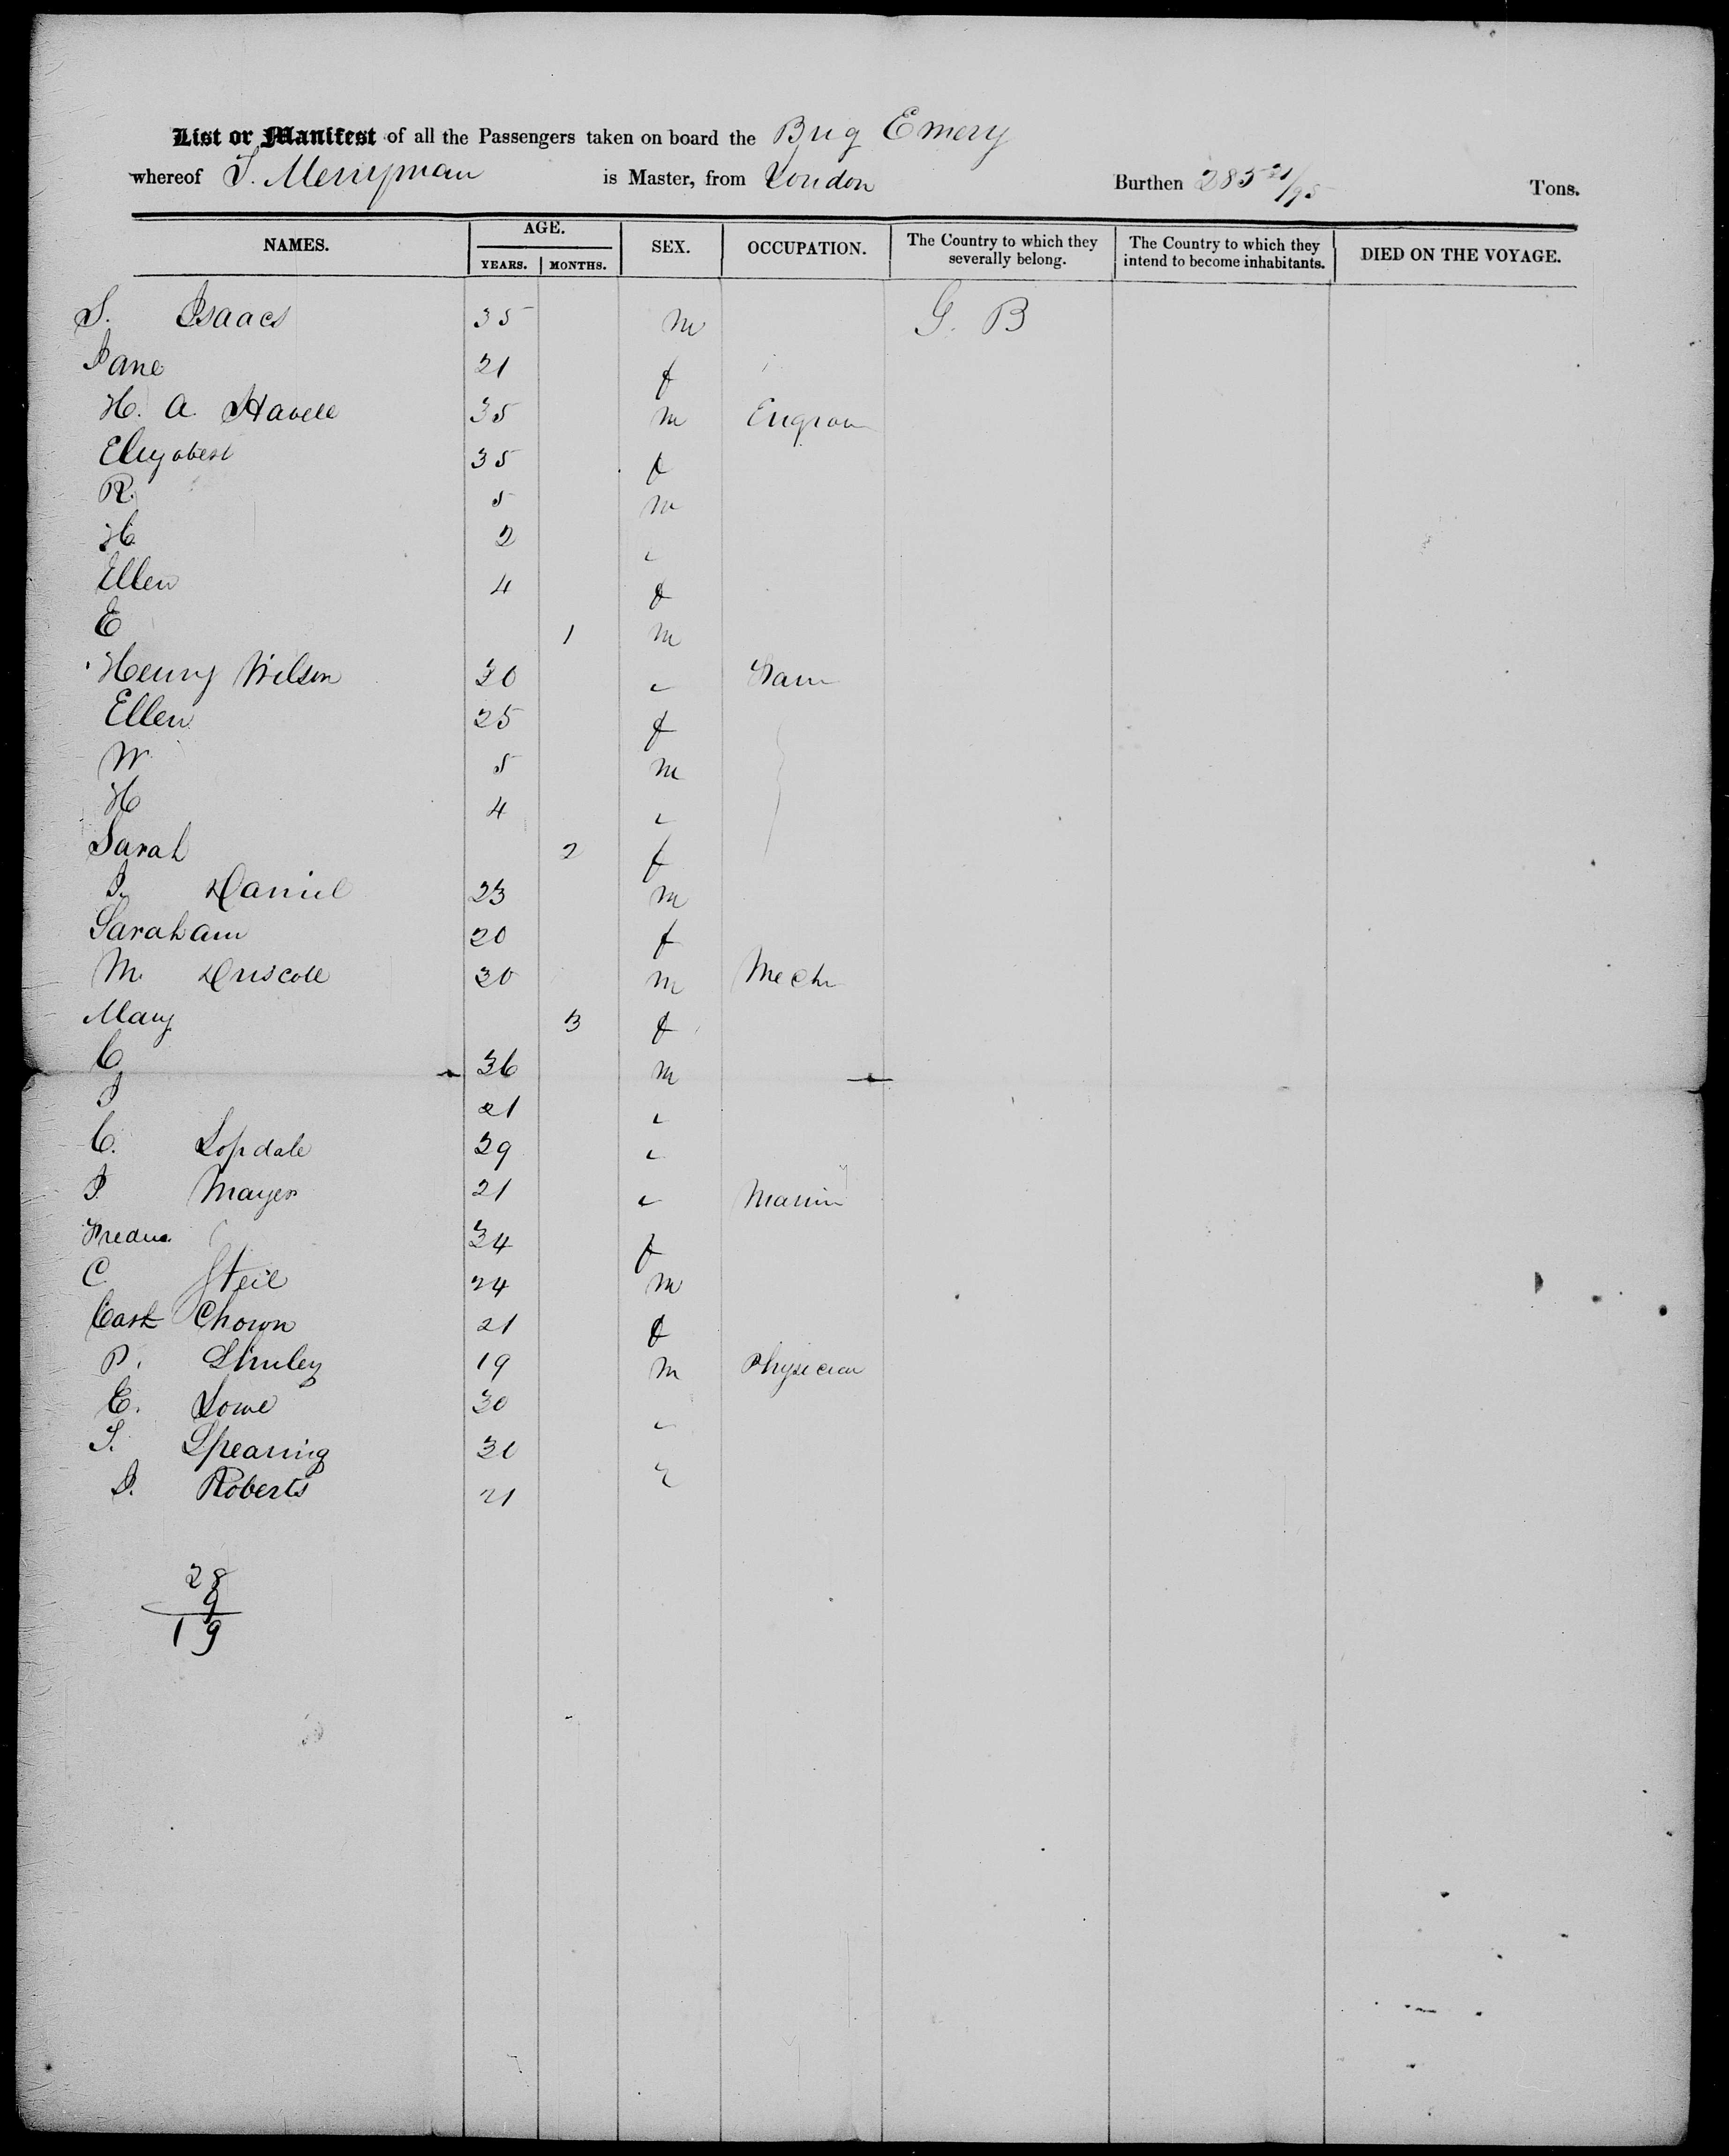 List or Manifest of all the Passengers taken on board the Brig Emery
whereof S. Merryman is Master, from London Burthen 285 21/95 Tons.
NAMES. AGE. YEARS. MONTHS. SEX. OCCUPATION. The Country to which they severally belong. The Country to which they intend to become inhabitants. DIED ON THE VOYAGE.
S. Isaacs 35 m G. B
Jane 21 f
H. A. Havell 35 m
35 f
R. 5 m
H 2 "
Ellen 4 f
E 1 m
Henry Wilson 30 "
Ellen 25 f
W 5 m
H 4 "
Sarah 2 f
J. Daniel 23 m
Sarah ann 20 f
M. Driscoll 30 m Mech
Mary 3 f
C 36 m
J 21 "
C. Lopdale 29 "
J. Mayer 21 "
34 f
C Steil 24 m
Chown 21 f
P. 19 m Physician
E. Lowe 30 "
S. Spearing 30 "
J. Roberts 21
28
9
19